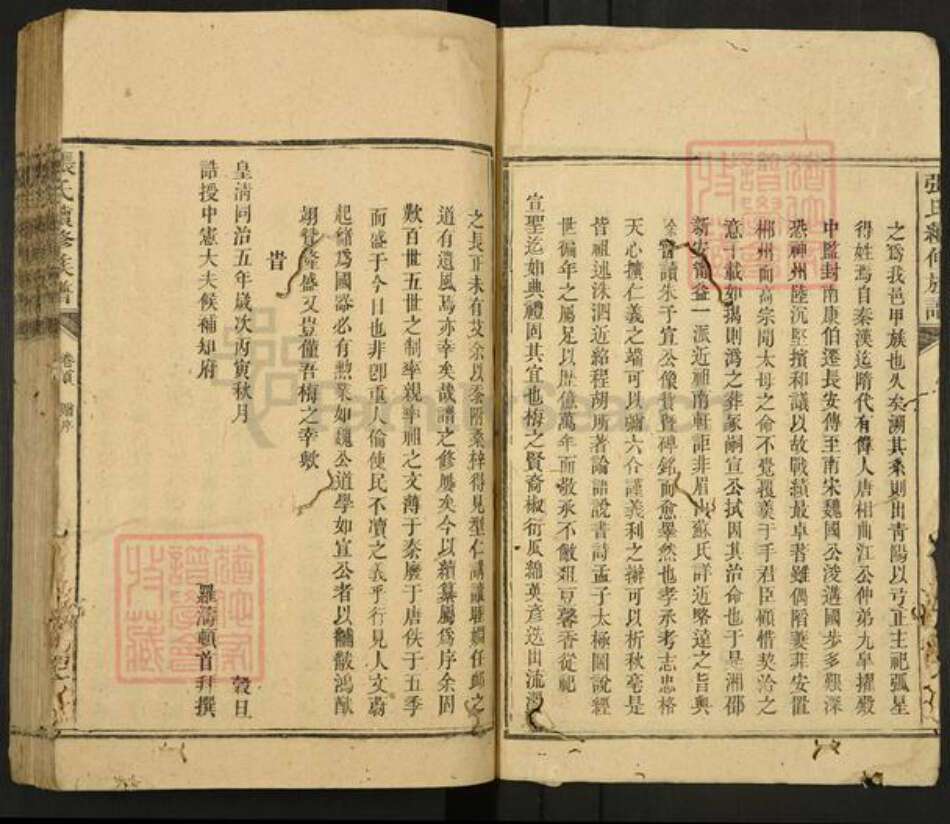 之爲我邑甲族也久矣溯其系則出青陽以弓正主祀弧星
得姓焉自秦漢迄隋代有偉人唐相曲江公仲弟九皐擢殿
中監封南康伯遷長安傳至南宋魏國公浚遘國步多艱深
恐神州陸沉堅擯和議以故戰績最卓著雖偶階萋菲安置
郴州而高宗聞太母之命不覺覆羹于手君臣顧惜契洽之
意十載如揭則潙之葬冢嗣宣公拭因其治命也于是湘邵
新安衡益一派近祖南軒詎非眉山蘇氏詳近略遠之旨與
余嘗讀朱子宣公像賛暨碑銘而愈舉然也孝承考志忠格
天心擴仁義之端可以彌六合謹義利之辦可以析秋毫是
皆祖述洙泗近紹程胡所著論語說書詩孟子太極圖說經
世編年之屬足以歷億萬年而敬承不斁俎豆馨香從祀
宣聖迄如典禮固其宜也梅之賢裔椒衍瓜綿英彦迭出流澤
之長正未有艾余以忝附桑梓得見型仁講讓睢嫺任卹之
道有遺風焉亦幸矣哉譜之修屢矣今以續纂屬爲序余固
歎百世五世之制率親率祖之文薄于秦廢于唐佚于五季
而盛于今日也非卽重人倫使民不凟之義乎行見人文蔚
起緒爲國器必有勲業如魏公道學如宣公者以黼黻鴻猷
翊賛隆盛又豈僅吾梅之幸歟
旹
皇清同治五年歲次丙寅秋月 榖旦
誥授中憲大夫候補知府
羅濤頓首拜撰
張氏續修族譜
卷首
贈序